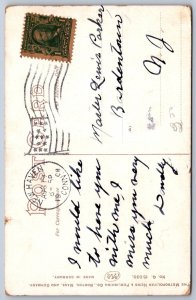 Master Lewis Parker
Bordentown
N J
I would like
to have you
with me I
miss you very
much. Emily
POST CARD
THE METROPOLITAN NEWS PUBLISHING CO., BOSTON, MASS. AND GERMANY.
MADE IN GERMANY.
CONN.